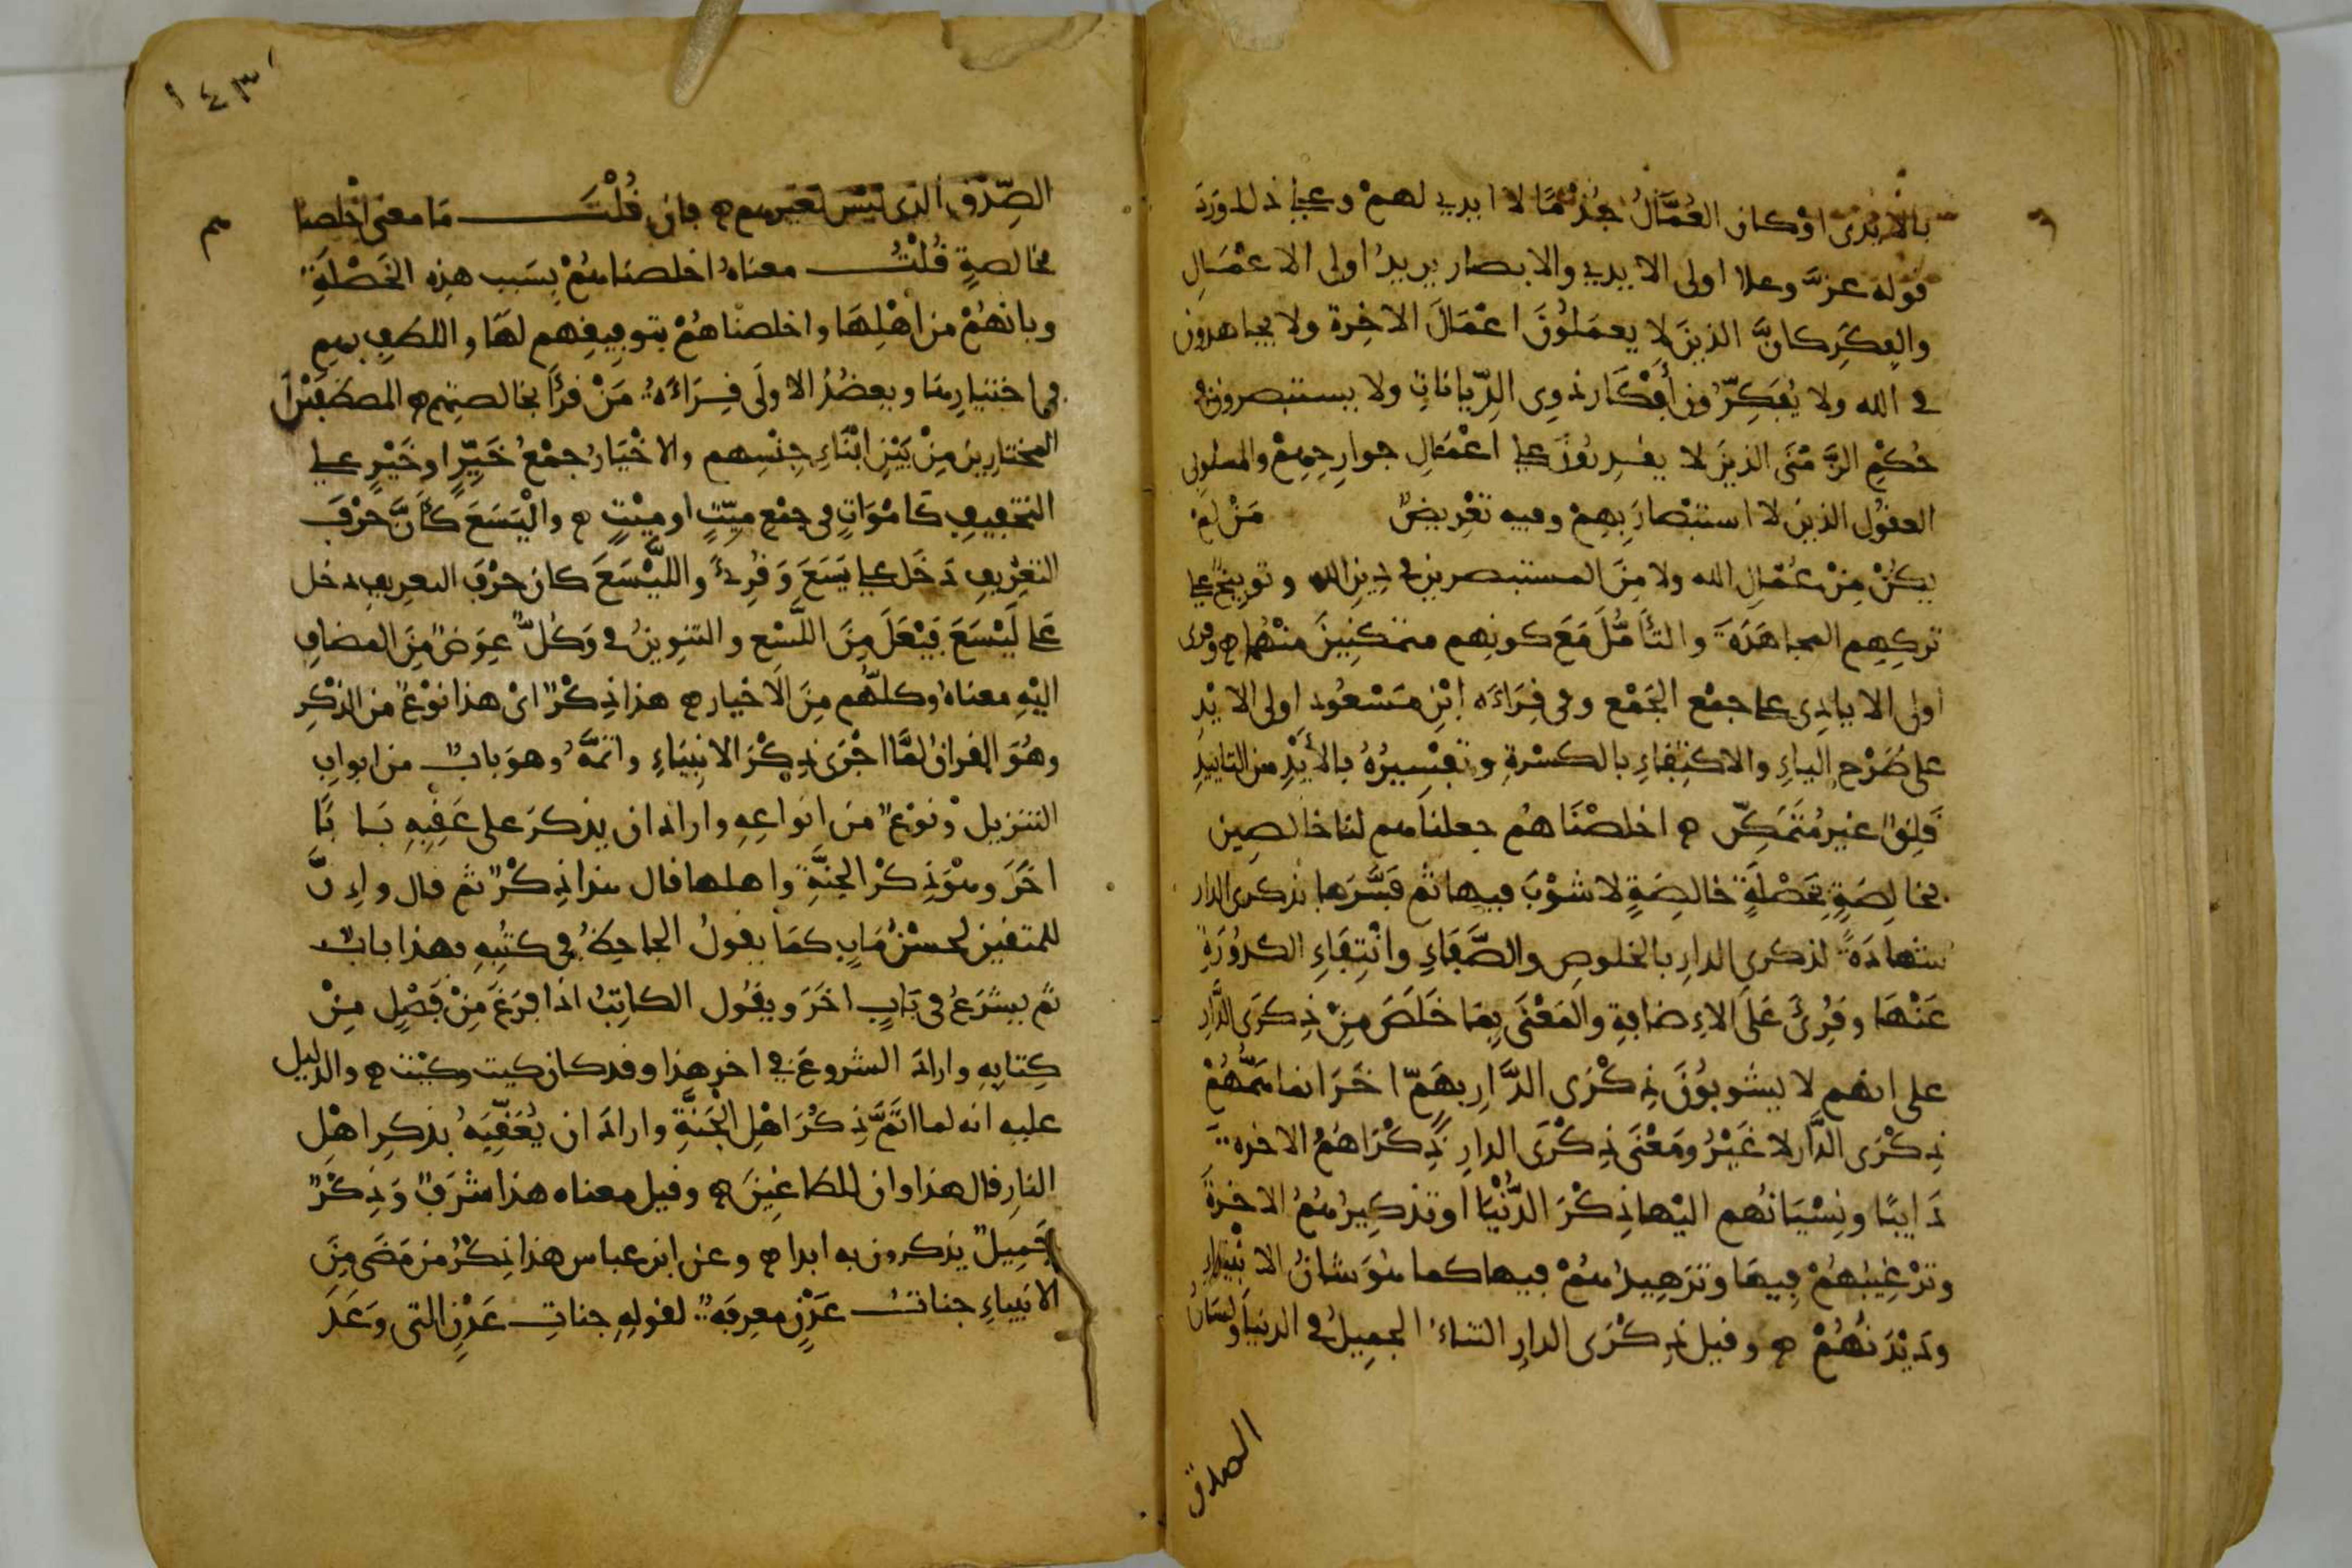 بالايدى او كان العمال جذما لا ايدي لهم وعلى ذلك ورد
قوله عزّ وعلا اولى الايدي والابصار يريد اولى الاعمال
والفكر كانّ الذين لا يعملون اعمال الاخرة ولا يجاهدون
في الله ولا يفكّرون أفكار ذوي الدّيانات ولا يستبصرون في
حكم الزّمنى الذين لا يقدرون على اعمال جوارحهم والمسلوبى
العقول الذين لا استبصار بهم وفيه تعريض من لم
يكن من عمّال الله ولا من المستبصرين في دين الله وتوبيخ على
تركهم المجاهدة والتأمّل مع كونهم متمكنين منهما وقرى
اولى الايادي على جمع الجمع وفي قراءه ابن مسعود اولى الايد
على طرح الياء والاكتفاء بالكسرة وتفسيره بالأيد من التاييد
قلق غير متمكّن اخلصناهم جعلناهم لنا خالصين
بخالصة بخصلة خالصة لا شوب فيها ثم فسّرها بذكرى الدار
شهادة لذكرى الدار بالخلوص والصّفاء وانتفاء الكدورة
عنها وقرئ على الاضافة والمعنى بما خلص من ذكرى الدّار
على انهم لا يشوبون ذكرى الدّار بهمّ اخر انما همّهم
ذكرى الدّار لا غير ومعنى ذكرى الدار ذكراهم الاخرة
دايبا ونسيانهم اليها ذكر الدّنيا او تذكيرهم الاخرة
وترغيبهم فيها وتزهيدهم فيها كما هو شان الانبياء
وديدنهم وقيل ذكرى الدار الثناء الجميل في الدنيا ولسان
الصدق
١٤٣
الصّدق الذى ليس لغيرهم فان قلت ما معنى اخلصنا
بخالصة قلت معناه اخلصناهم بسبب هذه الخصلة
وبانهم من اهلها واخلصناهم بتوفيقهم لها واللطف بهم
في اختيارها ويعضد الاولى قراءة من قرأ بخالصتهم المصطفين
المختارين من بين ابناء جنسهم والاخيار جمع خيّر او خير على
التخفيف كاموات في جمع ميّت او ميت واليسع كأنّ حرف
التعريف دخل على يسع وقرئ واللّيسع كان حرف التعريف دخل
على ليسع فيعل من اللسع والتنوين في وكلّ عوض من المضاف
اليه معناه وكلّهم من الاخيار هذا ذكر اى هذا نوع من الذكر
وهو القران لمّا اجرى ذكر الانبياء واتمّه وهو باب من ابواب
التنزيل ونوع من انواعه واراد ان يذكر على عقبه بابا
اخر وهو ذكر الجنّة واهلها قال هذا ذكر ثم قال وإنّ
للمتقين لحسن ماب كما يقول الجاحظ في كتبه فهذا باب
ثم يشرع في باب اخر ويقول الكاتب اذا فرغ من فصل من
كتابه واراد الشروع في اخر هذا وقد كان كيت وكيت والدليل
عليه انه لما اتمّ ذكر اهل الجنّة واراد ان يعقّبه بذكر اهل
النار قال هذا وان للطاغين وقيل معناه هذا شرف وذكر
جميل يذكرون به ابدا وعن ابن عباس هذا ذكر من مضى من
الانبياء جنات عدن معرفة لقوله جنات عدن التى وعد